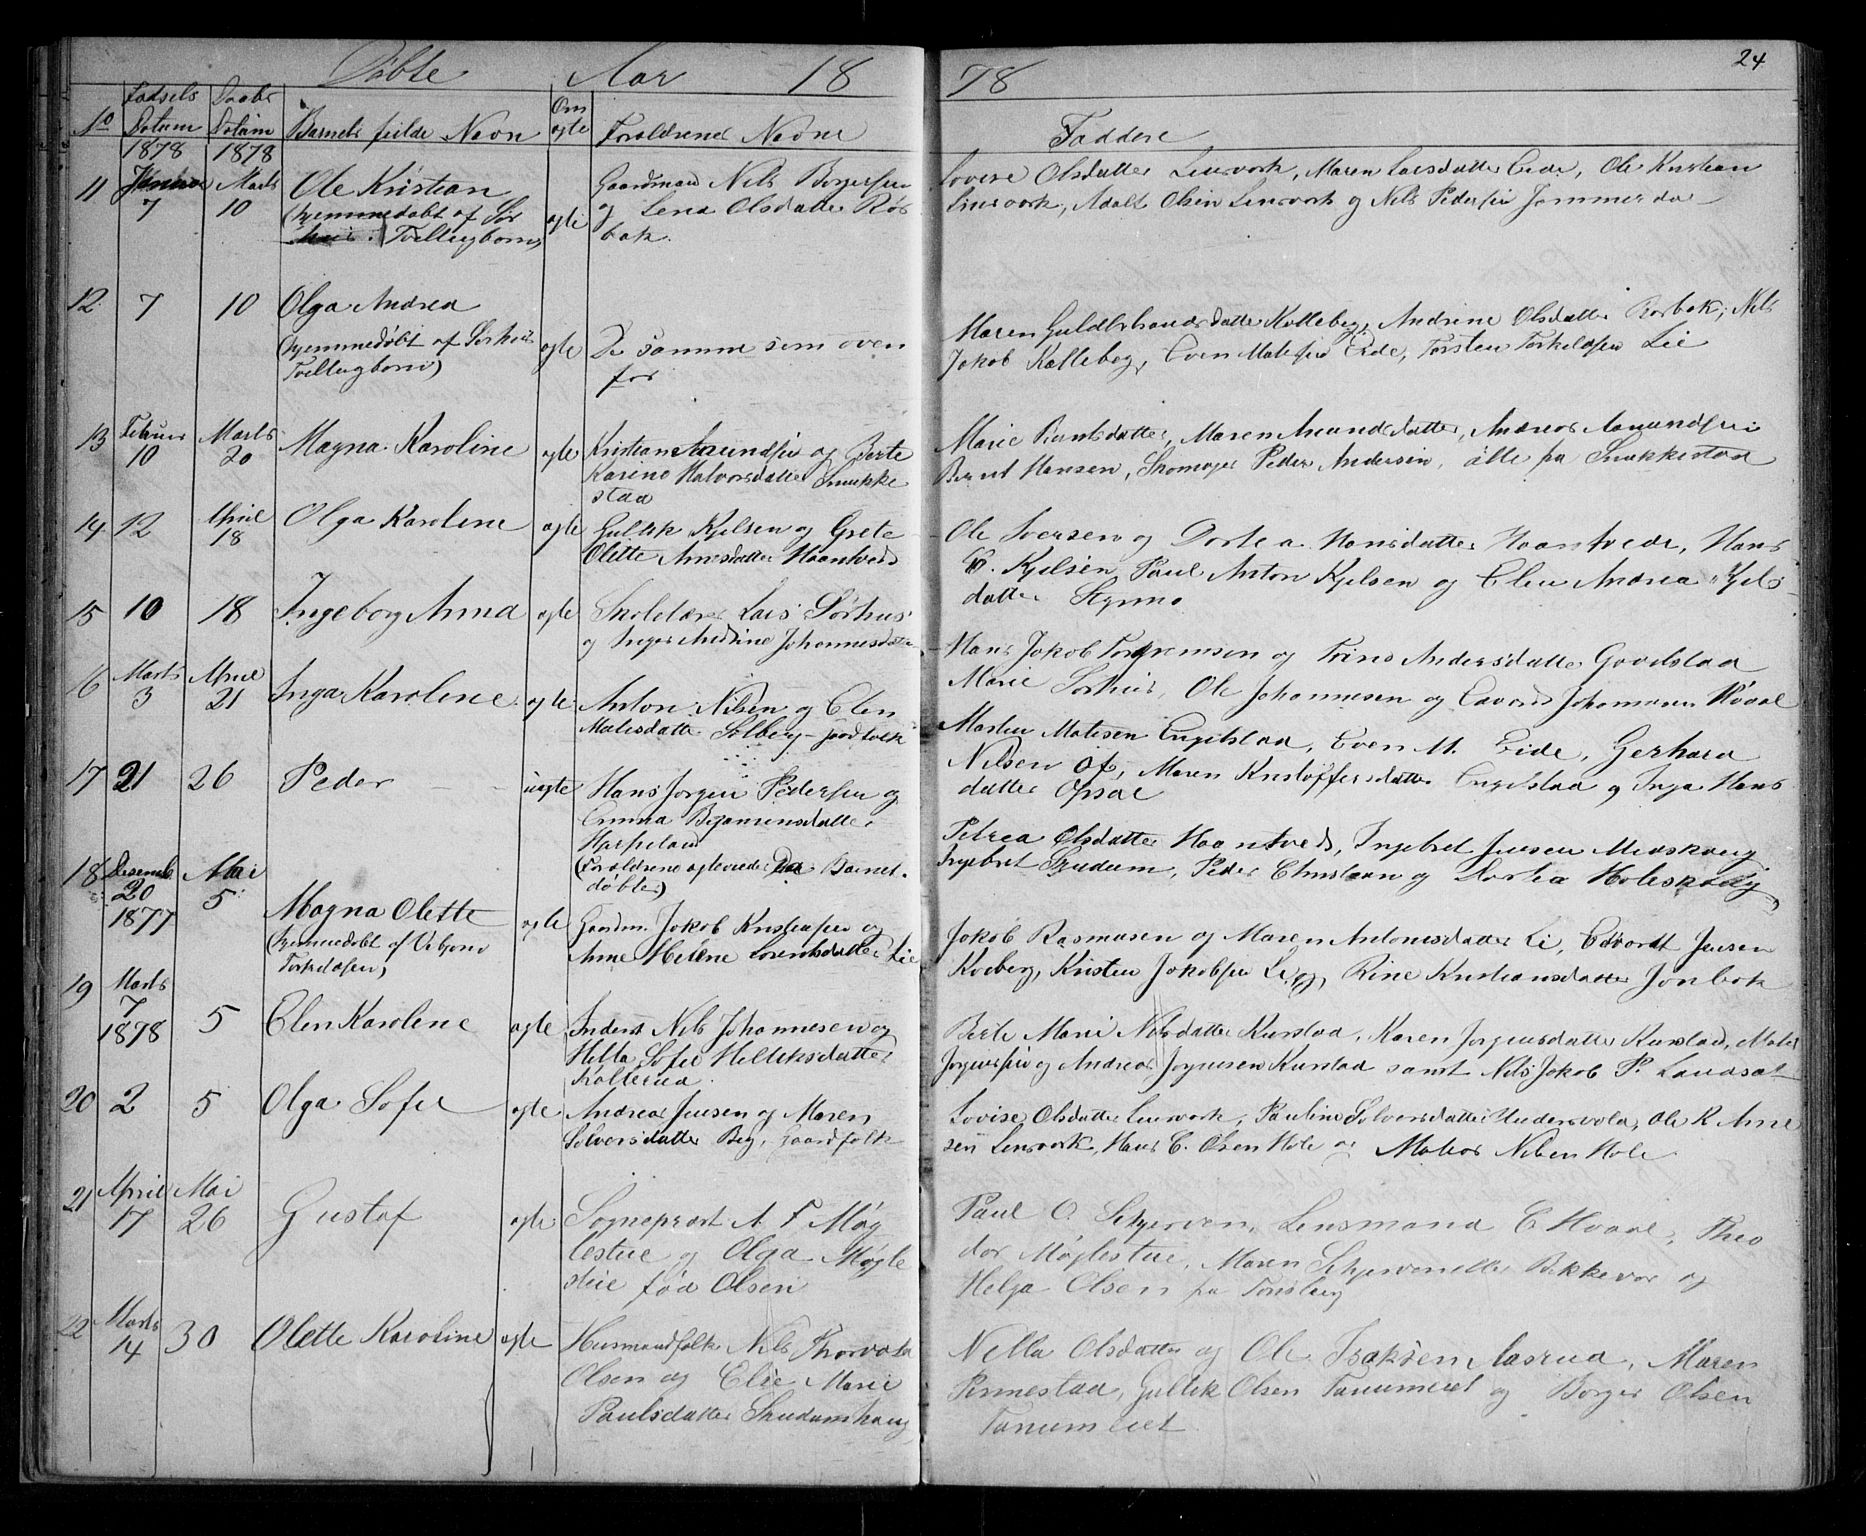 Döbte Aar 18 78
24
No Födsels Datum Daabs Datum Barnets fulde Navn Om ægte Foraldrenes Navne Faddere
1878 1878
11 Januar 7 Marts 10 Ole Kristian
(hjemmedöbt af Sör
Tvillingbörn) ægte
Gaardmand Nils Borgersen
og Lena Olsdatter Rös
bak.
Lovise Olsdatter Linsvork, Maren Larsdatter Eide, Ole Kristian
Linsvork, Adolt Olsen Linsvork og Nils Pedersen Jammerda
12. 7 10 Olga Andrea
(hjemmedöbt af Sörhus
Tvillingbörn) ægte
De samme som oven
for
Maren Guldbrandsdatter Kolleberg, Andrine Olsdatter Rosbak, Nils
Jakob Kalleberg, Even Matisen Eide, Torsten Torkeldsen Lie
13 Februar 10 Marts 20 Magna Karoline ægte
Kristian Amundsen og Berte
Karine Halvorsdatter Snukke
stad
Marie Berntsdatter, Maren Amundsdatter, Andreas Amundsen
Bernt Hansen, Skomager Peder Andersen, alle paa Snukkestad
14. 12 April 18 Olga Karoline ægte
Gullik Kjelsen og Grete
Olette Arnesdatter Haantveds
Ole Iversen og Dortea Hansdatter Haantvedt, Hans
C. Kjelsen, Paul Anton Kjelsen og Elen Andrea Kjels
datter Styrmo
15 10 18 Ingeborg Anna ægte
Skolelærer Lars Sörhus
og Inger Andrine Johannesdatter
Hans Jakob Torgrimsen og Trine Andersdatter Gavelstad
Marie Sörhus, Ole Johannesen og Edvard Johannesen Hvaal
6 Marts 3 April 21 Inga Karoline ægte
Anton Nilsen og Elen
Matisdatter Solberg - gaardfolk
Martin Matisen Engelstad, Even M. Eide, Gerhard
Nilsen Of, Maren Kristoffersdatter Engelstad og Inga Hans
datter Opsal
17 21 26 Peder uægte
Hans Jörgen Pedersen og
Emma Bejaminsdatter
Harpeland
(Foraldrene ægteviede da Barnet
döbtes)
Petrea Olsdatter Haantveds, Ingebret Jensen Medskaug
Ingebret Skudum, Peder Christian og Dortea Holeskaug
18 Desemb 20 1877 Mai 5 Magna Olette
(hjemmedöbt af Vebjörn
Torkelsen) ægte
Gaardm. Jakob Kristensen og
Anne Helene Lorentsdatter Lie
Jakob Rasmusen og Maren Antonisdatter Li, Edvardt Jensen
Kroberg, Kristen Jakobsen Li og Rine Kristiansdatter Jonbak
19 Marts 7 1878 5 Elen Karoline ægte
Inderst Nils Johannesen og
Hella Sofie Helliksdatter
Kolterud.
Berte Marie Nilsdatter Kurstad, Karen Jorgensdatter Kurstad, Matis
Jorgensen og Andreas Jorgensen Kurstad samt Nils Jakob P. Landsat
20 2 5 Olga Sofie ægte
Andreas Jensen og Maren
Solversdatter Berg, gaardfolk
Lovise Olsdatter Linsvork, Pauline Solversdatter Undersvold, Ole K Arne
sen Linsvork, Hans C. Olsen Hole og Matias Nilsen Hole
21 April 17 Mai 26 Gustaf ægte
Sogneprest A F Møg
lestue og Olga Møgle
stue född Olsen
Paul O. Skjerven, Lensmand E Hvaal, Theo
dor Møglestue, Maren Skjerven Bakkevar og
Helga Olsen fra Tönsberg
22 Marts 14 30 Olette Karoline ægte
Husmandfolk Nils Thorvald
Olsen og Elise Marie
Paulsdatter Skudumhaug
Nella Olsdatter og Ole Isaksen Aasrud, Maren
Pernestad, Gullik Olsen Tanumeiet og Borger Olsen
Tanumeiet